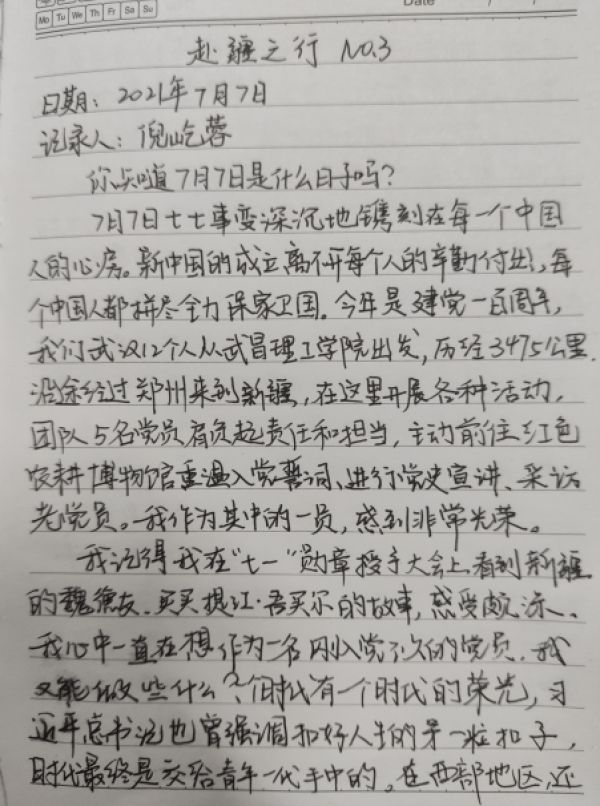 Date / /
Mo Tu We Th Fr Sa Su
赴疆之行 NO.3
日期：2021年7月7日
记录人：倪屹蓉
你知道7月7日是什么日子吗？
7月7日七七事变深沉地镌刻在每一个中国
人的心房。新中国的成立离不开每个人的辛勤付出，每
个中国人都拼尽全力保家卫国。今年是建党一百周年，
我们武汉12个人从武昌理工学院出发，历经3475公里，
沿途经过郑州来到新疆，在这里开展各种活动，
团队5名党员肩负起责任和担当，主动前往红色
农耕博物馆重温入党誓词、进行党史宣讲、采访
老党员。我作为其中的一员，感到非常光荣。
我记得我在“七一”勋章授予大会上看到新疆
的魏德友、买买提江·吾买尔的故事，感受颇深、
我心中一直在想作为一名刚入党不久的党员，我
又能做些什么？个时代有一个时代的荣光，习
近平总书记也曾强调扣好人生的第一粒扣子，
时代最终是交给青年一代手中的。在西部地区，还